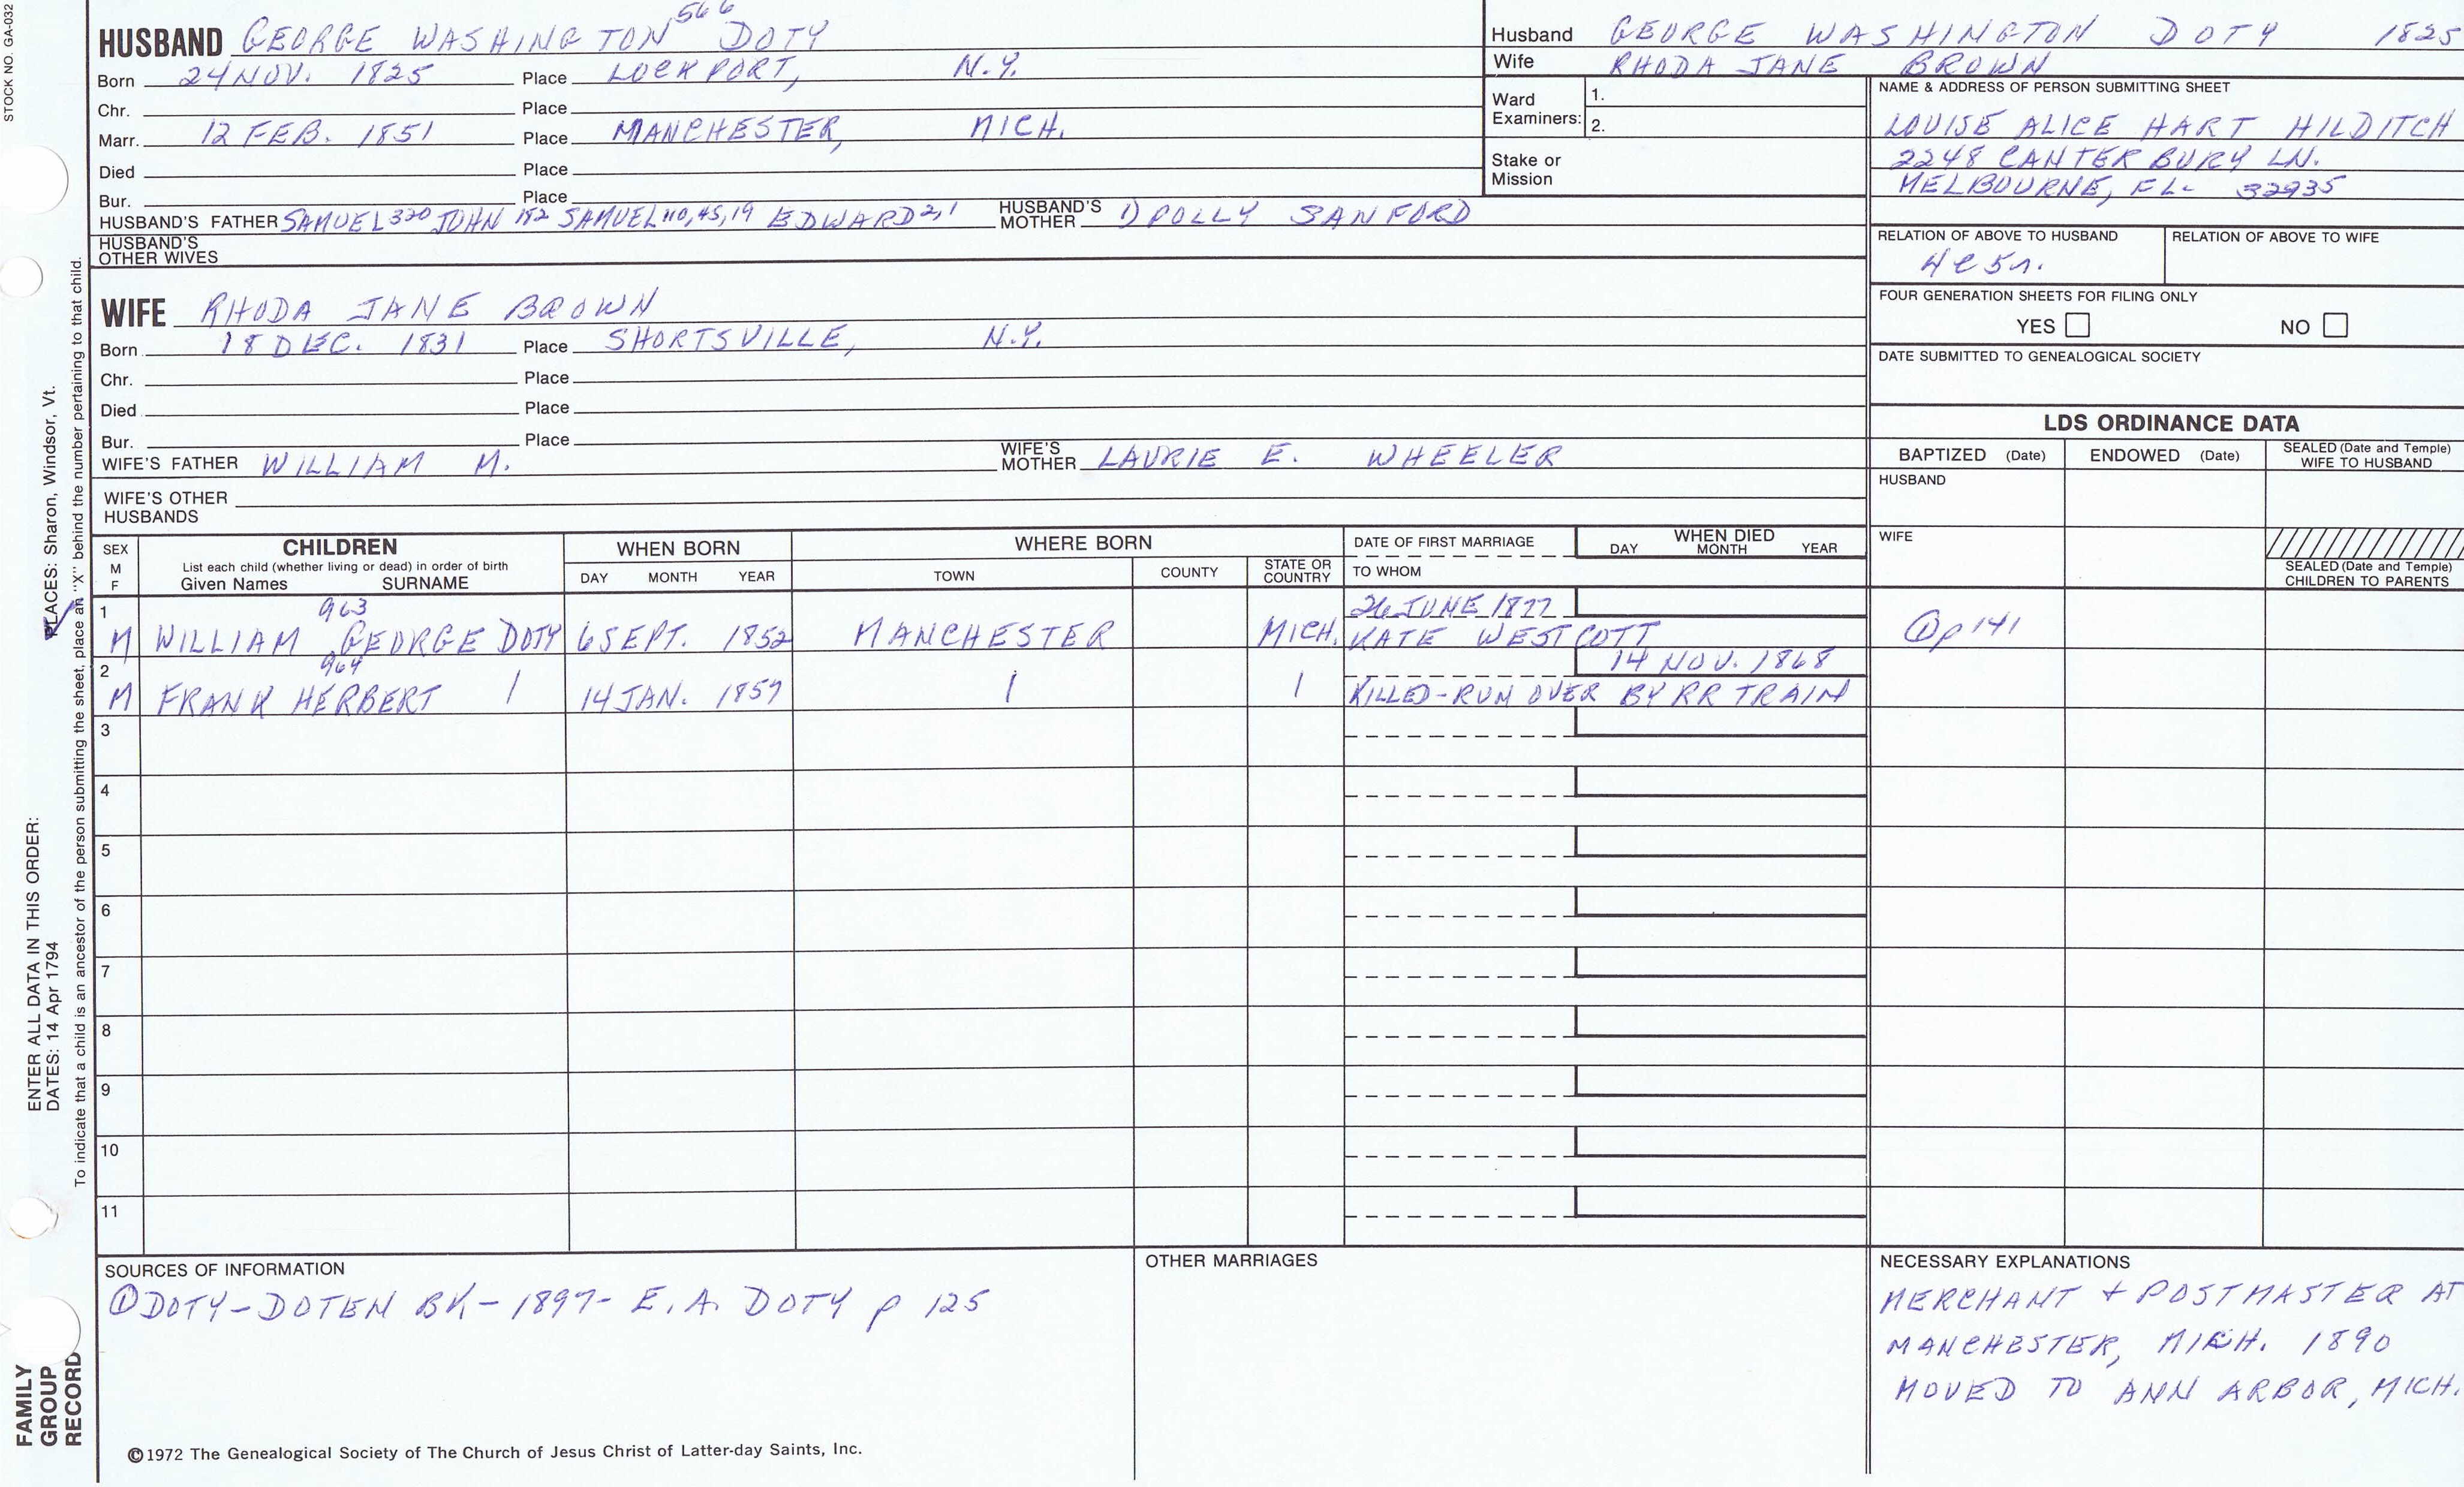 STOCK NO. GA-032
HUSBAND GEORGE WASHINGTON 566 DOTY
Born 24 NOV. 1825 Place LOCKPORT, N.Y.
Chr. Place
Marr. 12 FEB. 1851 Place MANCHESTER, MICH.
Died Place
Bur. Place
HUSBAND'S FATHER SAMUEL 320 JOHN 182 SAMUEL 110,45,19 EDWARD 2,1 HUSBAND'S MOTHER 1) POLLY SANFORD
HUSBAND'S OTHER WIVES
Husband GEORGE WASHINGTON DOTY 1825
Wife RHODA JANE BROWN
Ward Examiners: 1.
2.
Stake or Mission
NAME & ADDRESS OF PERSON SUBMITTING SHEET
LOUISE ALICE HART HILDITCH
2248 CANTERBURY LN.
MELBOURNE, FL- 32935
RELATION OF ABOVE TO HUSBAND RELATION OF ABOVE TO WIFE
FOUR GENERATION SHEETS FOR FILING ONLY
YES NO
DATE SUBMITTED TO GENEALOGICAL SOCIETY
WIFE RHODA JANE BROWN
Born 18 DEC. 1831 Place SHORTSVILLE, N.Y.
Chr. Place
Died Place
Bur. Place
WIFE'S FATHER WILLIAM M. WIFE'S MOTHER LAURIE E. WHEELER
WIFE'S OTHER HUSBANDS
LDS ORDINANCE DATA
BAPTIZED (Date) ENDOWED (Date) SEALED (Date and Temple) WIFE TO HUSBAND
HUSBAND
WIFE
SEALED (Date and Temple) CHILDREN TO PARENTS
SEX M F CHILDREN WHEN BORN WHERE BORN DATE OF FIRST MARRIAGE WHEN DIED
List each child (whether living or dead) in order of birth
Given Names SURNAME DAY MONTH YEAR TOWN COUNTY STATE OR COUNTRY TO WHOM DAY MONTH YEAR
1 963 26 JUNE 1877
M WILLIAM GEORGE DOTY 6 SEPT. 1852 MANCHESTER MICH. KATE WESTCOTT ① p 141
2 964 14 NOV. 1868
M FRANK HERBERT | 14 JAN. 1857 | | KILLED-RUN OVER BY RR TRAIN
3
4
5
6
7
8
9
10
11
SOURCES OF INFORMATION
① DOTY-DOTEN BK-1897- E.A. DOTY p 125
OTHER MARRIAGES
NECESSARY EXPLANATIONS
MERCHANT + POSTMASTER AT
MANCHESTER, MICH. 1890
MOVED TO ANN ARBOR, MICH.
©1972 The Genealogical Society of The Church of Jesus Christ of Latter-day Saints, Inc.
FAMILY
GROUP
RECORD
ENTER ALL DATA IN THIS ORDER:
DATES: 14 Apr 1794
PLACES: Sharon, Windsor, Vt.
To indicate that a child is an ancestor of the person submitting the sheet, place an "X" behind the number pertaining to that child.